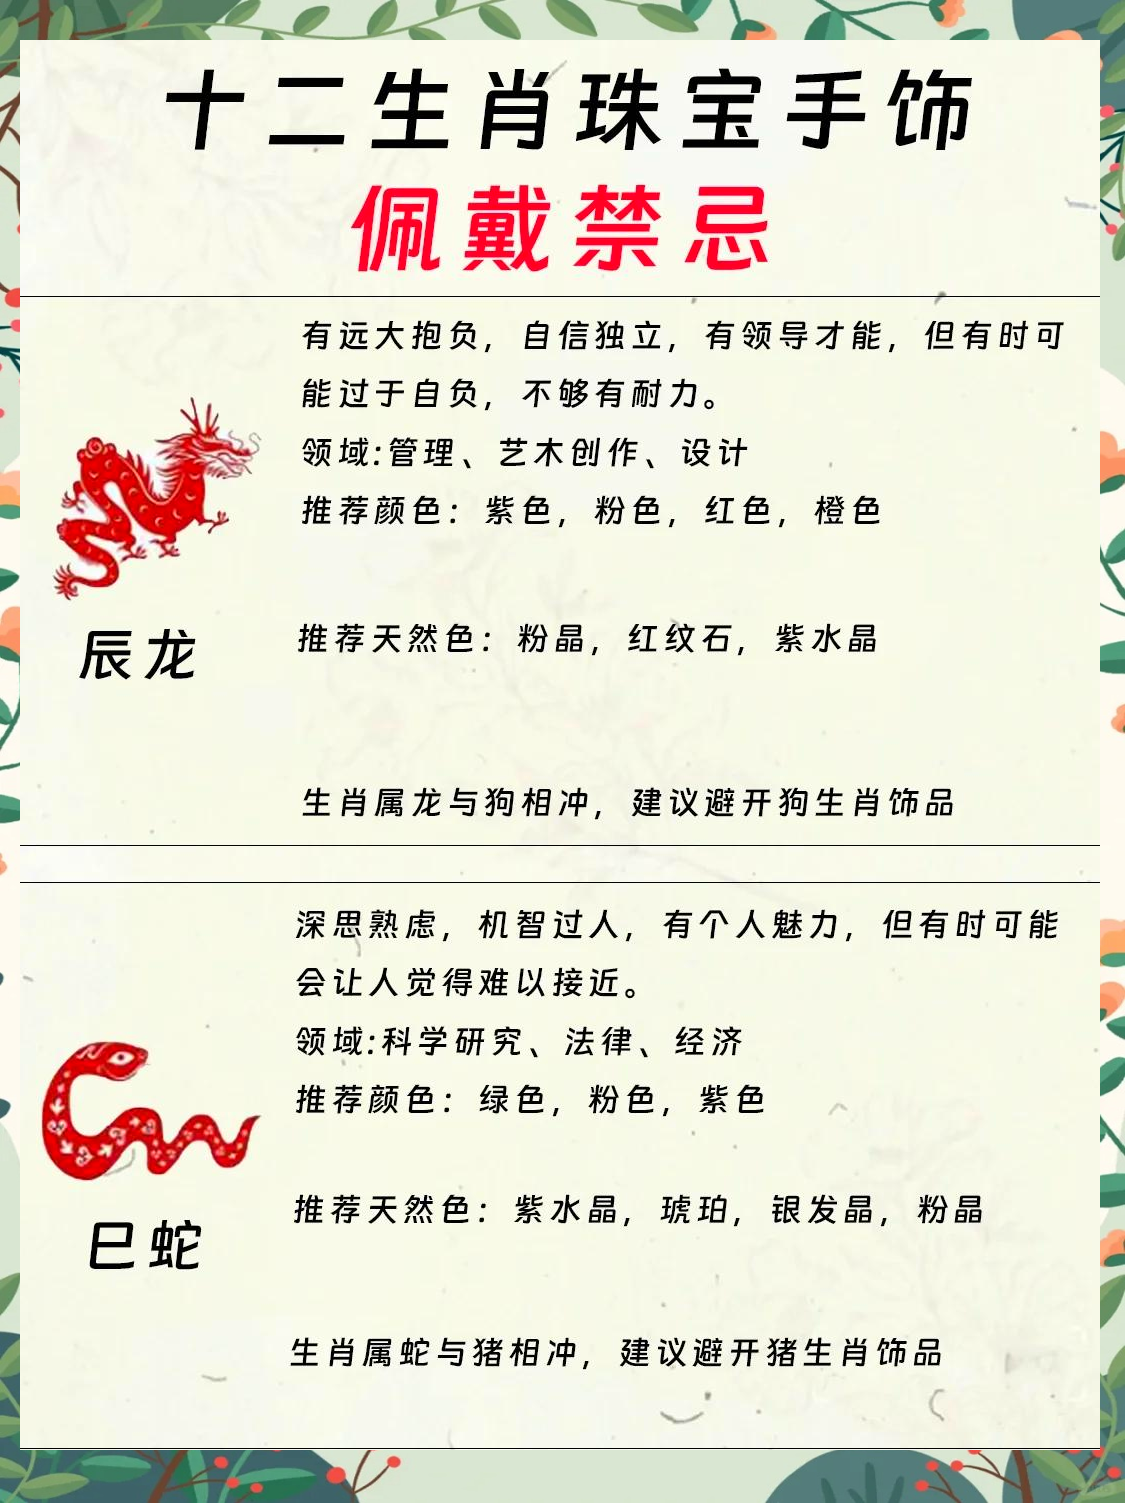 十二生肖珠宝手饰
佩戴禁忌
有远大抱负，自信独立，有领导才能，但有时可
能过于自负，不够有耐力。
领域:管理、艺木创作、设计
推荐颜色：紫色，粉色，红色，橙色
推荐天然色：粉晶，红纹石，紫水晶
辰龙
生肖属龙与狗相冲，建议避开狗生肖饰品
深思熟虑，机智过人，有个人魅力，但有时可能
会让人觉得难以接近。
领域:科学研究、法律、经济
推荐颜色：绿色，粉色，紫色
推荐天然色：紫水晶，琥珀，银发晶，粉晶
巳蛇
生肖属蛇与猪相冲，建议避开猪生肖饰品